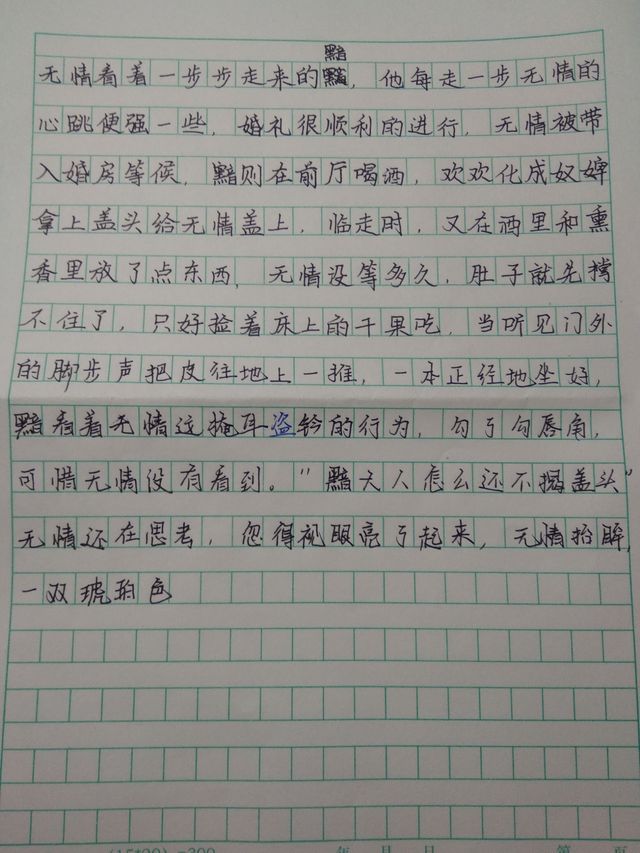 黯
无情看着一步步走来的黯，他每走一步无情的
心跳便强一些，婚礼很顺利的进行，无情被带
入婚房等候，黯则在前厅喝酒，欢欢化成奴婢
拿上盖头给无情盖上，临走时，又在酒里和熏
香里放了点东西，无情没等多久，肚子就先撑
不住了，只好捡着床上的干果吃，当听见门外
的脚步声把皮往地上一推，一本正经地坐好，
黯看着无情这掩耳盗铃的行为，勾了勾唇角，
可惜无情没有看到。"黯大人怎么还不揭盖头"
无情还在思考，忽得视眼亮了起来，无情抬眸，
一双琥珀色
(15*20)=300 年 月 日 第 页